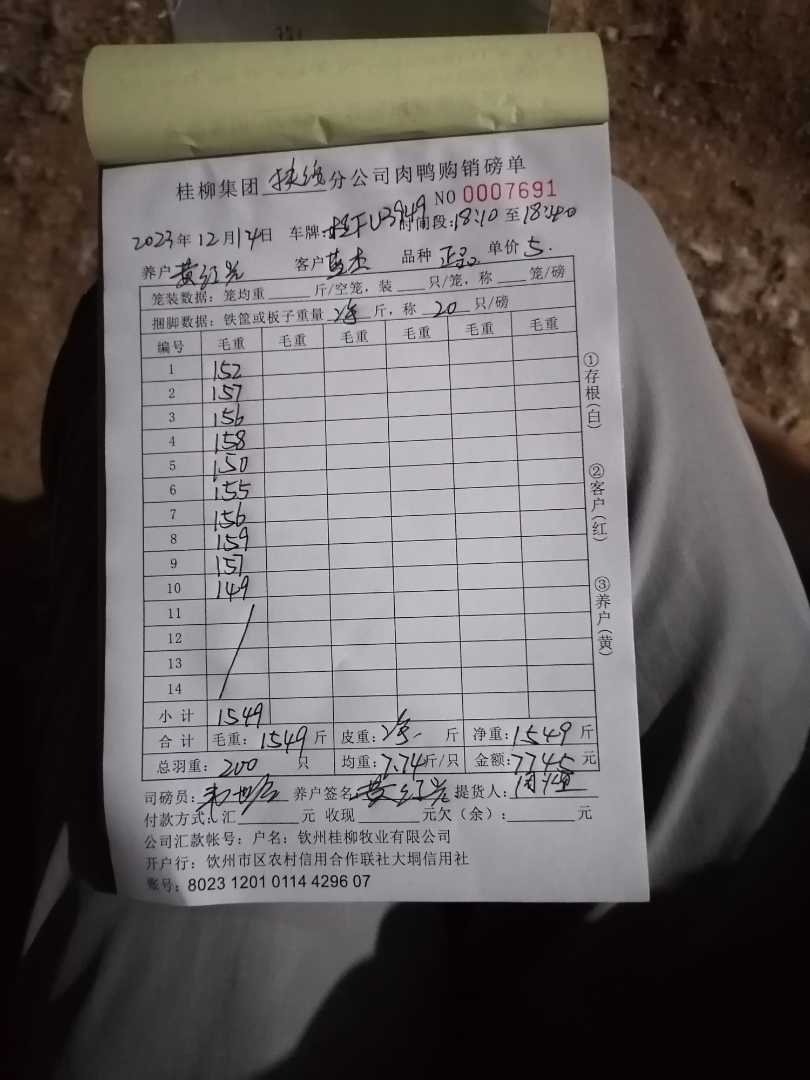 桂柳集团 分公司肉鸭购销磅单
NO 0007691
2023年12月14日 车牌: U3949 时间段:18:10至18:40
养户黄红光 客户 品种正品 单价5.
笼装数据: 笼均重 斤/空笼, 装 只/笼, 称 笼/磅
捆脚数据: 铁筐或板子重量 净 斤, 称 20 只/磅
编号 毛重 毛重 毛重 毛重 毛重 毛重
1 152
2 157
3 156
4 158
5 150
6 155
7 156
8 159
9 157
10 149
11
12
13
14
小计 1549
合计 毛重: 1549 斤 皮重: 净 斤 净重: 1549 斤
总羽重: 200 只 均重: 7.74 斤/只 金额: 7745 元
司磅员: 养户签名 黄红光 提货人:
付款方式: 汇 元 收现 元欠(余): 元
公司汇款帐号: 户名: 钦州桂柳牧业有限公司
开户行: 饮州市区农村信用合作联社大垌信用社
账号: 8023 1201 0114 4296 07
①存根(白)
②客户(红)
③养户(黄)